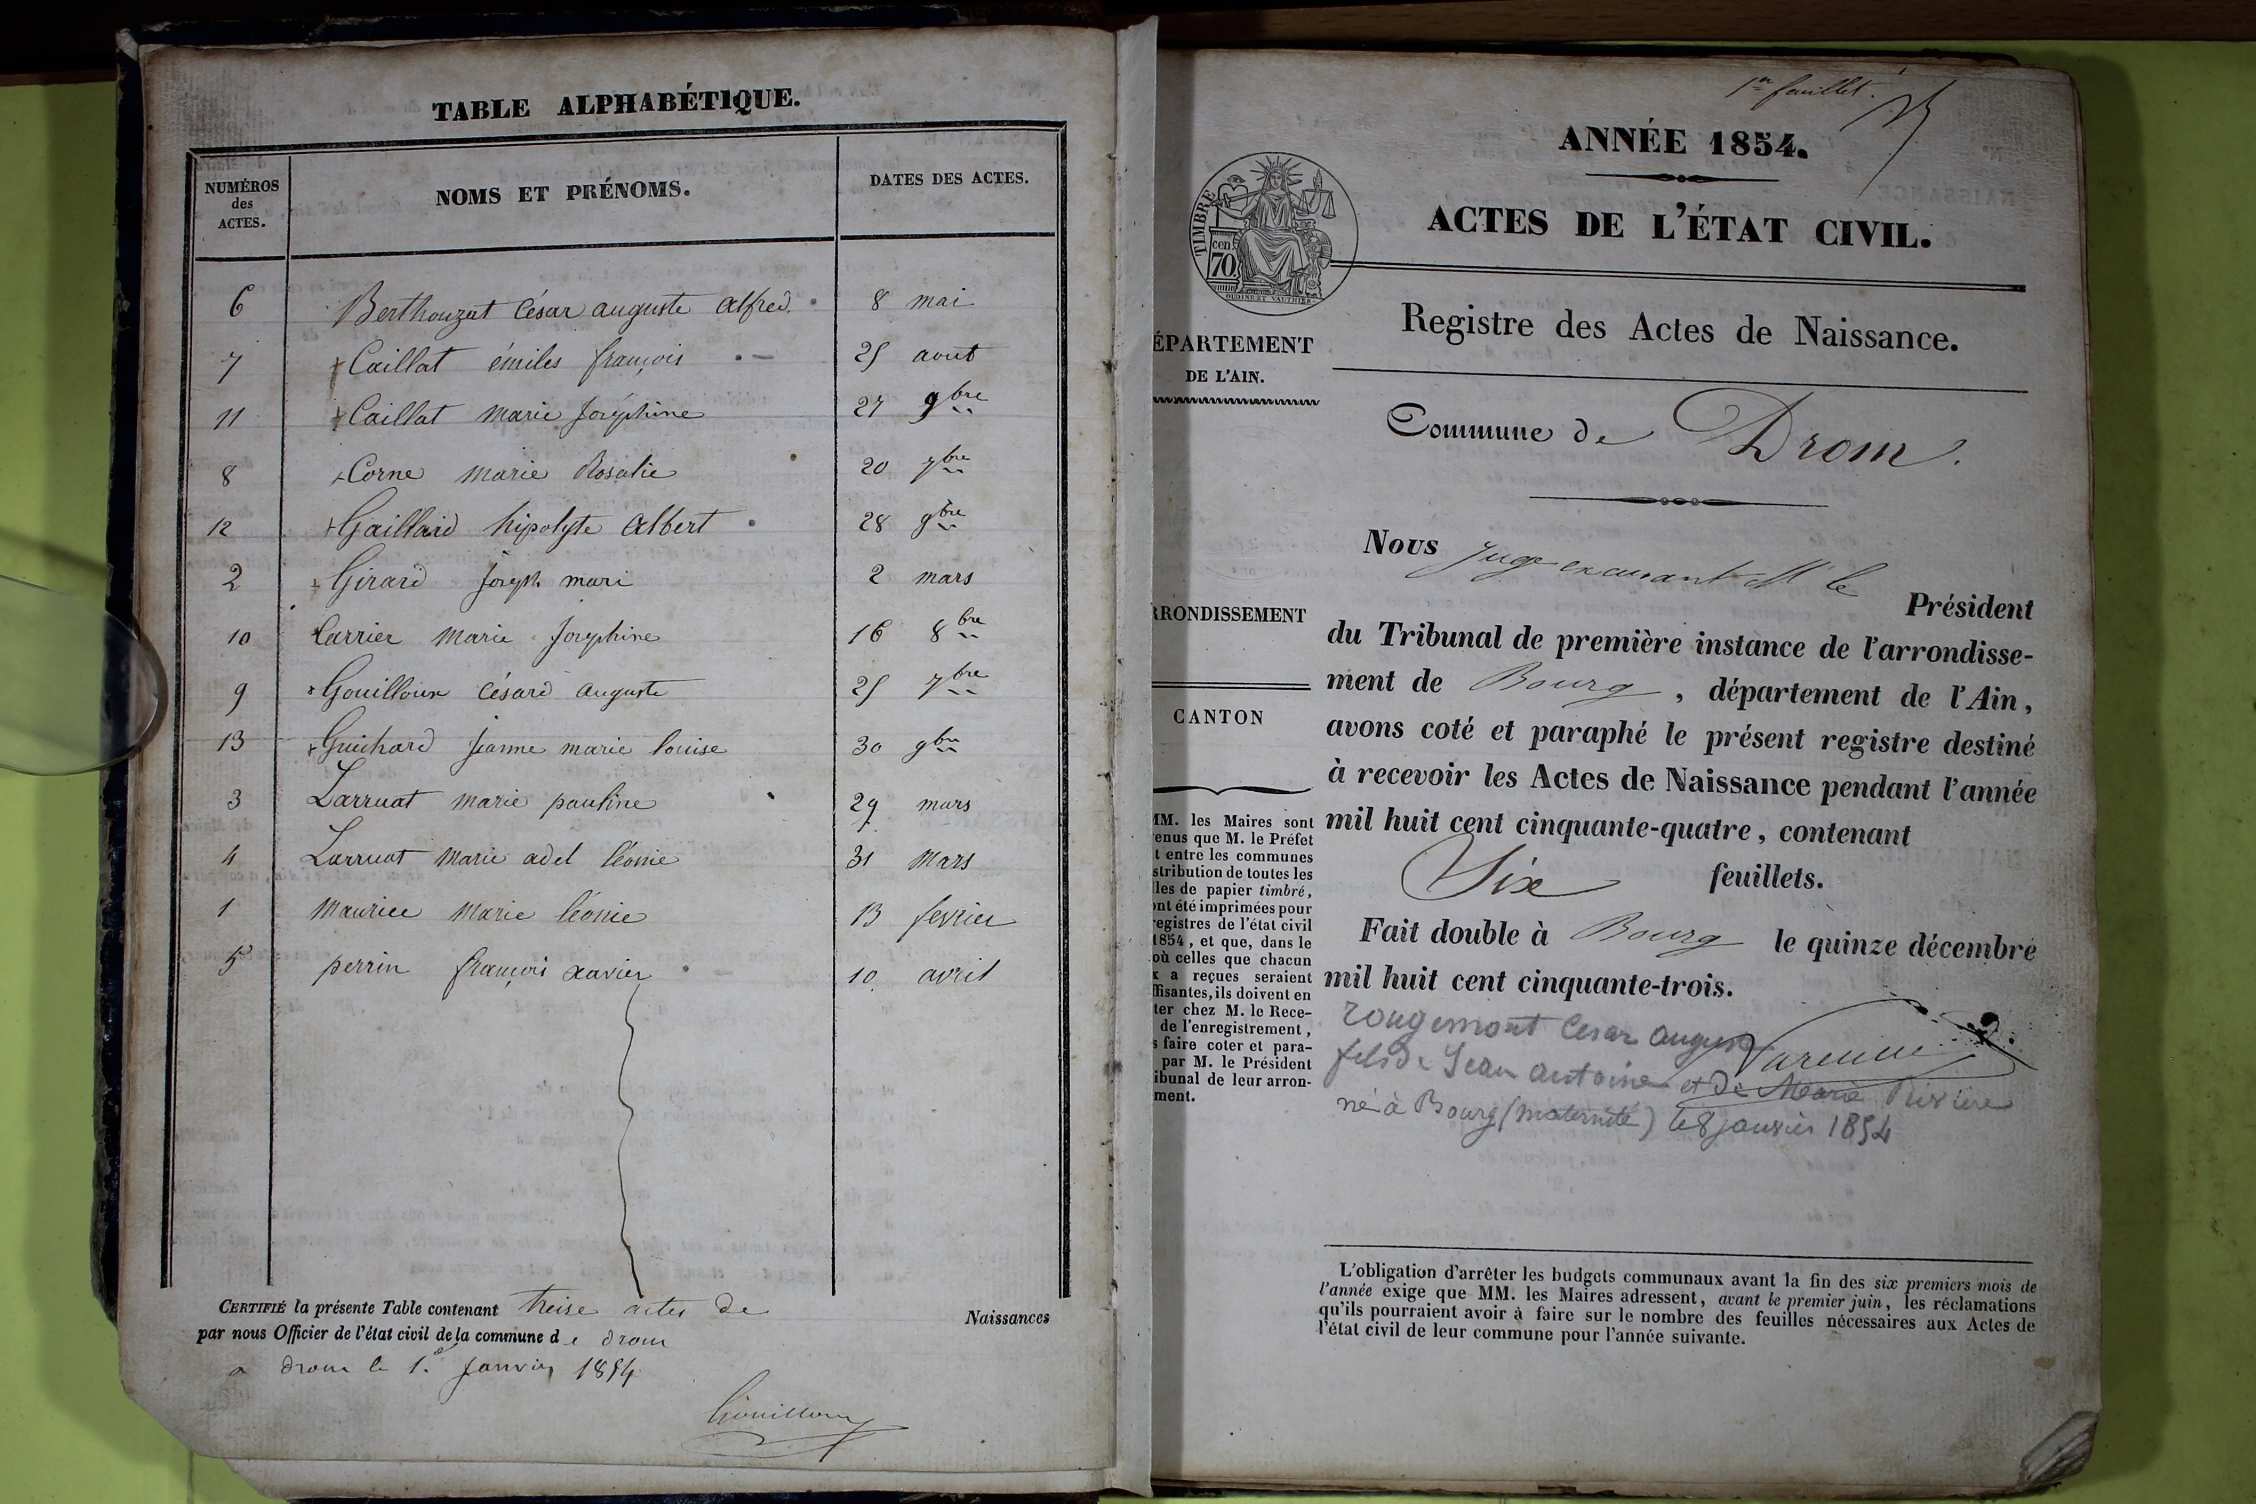 TABLE ALPHABÉTIQUE.
NUMÉROS
des
ACTES.
NOMS ET PRÉNOMS.
DATES DES ACTES.
6 Berthouzat César auguste alfred. 8 mai
7 Caillat émiles françois 25 aout
11 Caillat marie Joséphine 27 9bre
8 Corne marie Rosalie 20 7bre
12 Gaillard hipolyte albert 28 9bre
2 Girard Joseph mari 2 mars
10 Carrier marie Josephine 16 8bre
9 Gouilloux Césard auguste 25 7bre
13 Guichard Jeanne marie louise 30 9bre
3 Larruat marie pauline 29 mars
4 Larruat marie adel léonie 31 mars
1 maurice marie léonie 13 fevrier
5 perrin françois xavier 10 avril
CERTIFIÉ la présente Table contenant treise actes de Naissances
par nous Officier de l'état civil de la commune de drom
a drom le 1er Janvier 1854
Gouilloux
1er feuillet.
ANNÉE 1854.
ACTES DE L'ÉTAT CIVIL.
TIMBRE
70 cen
OUDINE ET VAUTHIER
Registre des Actes de Naissance.
ÉPARTEMENT
DE L'AIN.
Commune de Drom.
RRONDISSEMENT
CANTON
MM. les Maires sont
enus que M. le Préfet
t entre les communes
stribution de toutes les
lles de papier timbré,
ont été imprimées pour
registres de l'état civil
1854, et que, dans le
où celles que chacun
x a reçues seraient
ffisantes, ils doivent en
ter chez M. le Rece-
de l'enregistrement,
s faire coter et para-
par M. le Président
ibunal de leur arron-
ment.
Nous Juge excusant Mr le Président
du Tribunal de première instance de l'arrondisse-
ment de Bourg, département de l'Ain,
avons coté et paraphé le présent registre destiné
à recevoir les Actes de Naissance pendant l'année
mil huit cent cinquante-quatre, contenant
Six feuillets.
Fait double à Bourg le quinze décembre
mil huit cent cinquante-trois.
Varenne
rougemont Cesar august
fils de Jean antoine et de Marie Rivière
né à Bourg (maternité) le 8 janvier 1854
L'obligation d'arrêter les budgets communaux avant la fin des six premiers mois de
l'année exige que MM. les Maires adressent, avant le premier juin, les réclamations
qu'ils pourraient avoir à faire sur le nombre des feuilles nécessaires aux Actes de
l'état civil de leur commune pour l'année suivante.